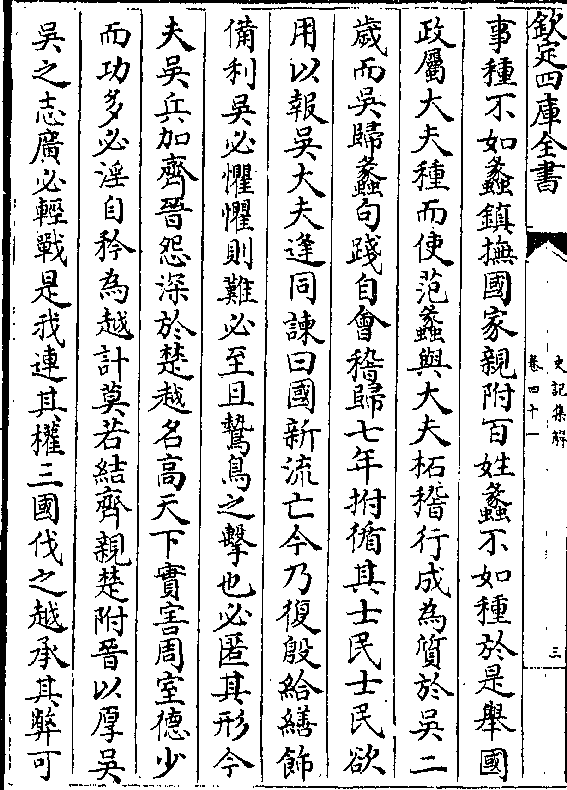 欽定四庫全書
史記集解
卷四十一
三
事種不如蠡鎮撫國家親附百姓蠡不如種於是舉國
政屬大夫種而使范蠡與大夫柘稽行成為質於吳二
歲而吳歸蠡句踐自會稽歸七年拊循其士民士民欲
用以報吳大夫逢同諫曰國新流亡今乃復殷給繕飾
備利吳必懼懼則難必至且鷙鳥之擊也必匿其形今
夫吳兵加齊晉怨深於楚越名高天下實害周室德少
而功多必淫自矜為越計莫若結齊親楚附晉以厚吳
吳之志廣必輕戰是我連其權三國伐之越承其弊可